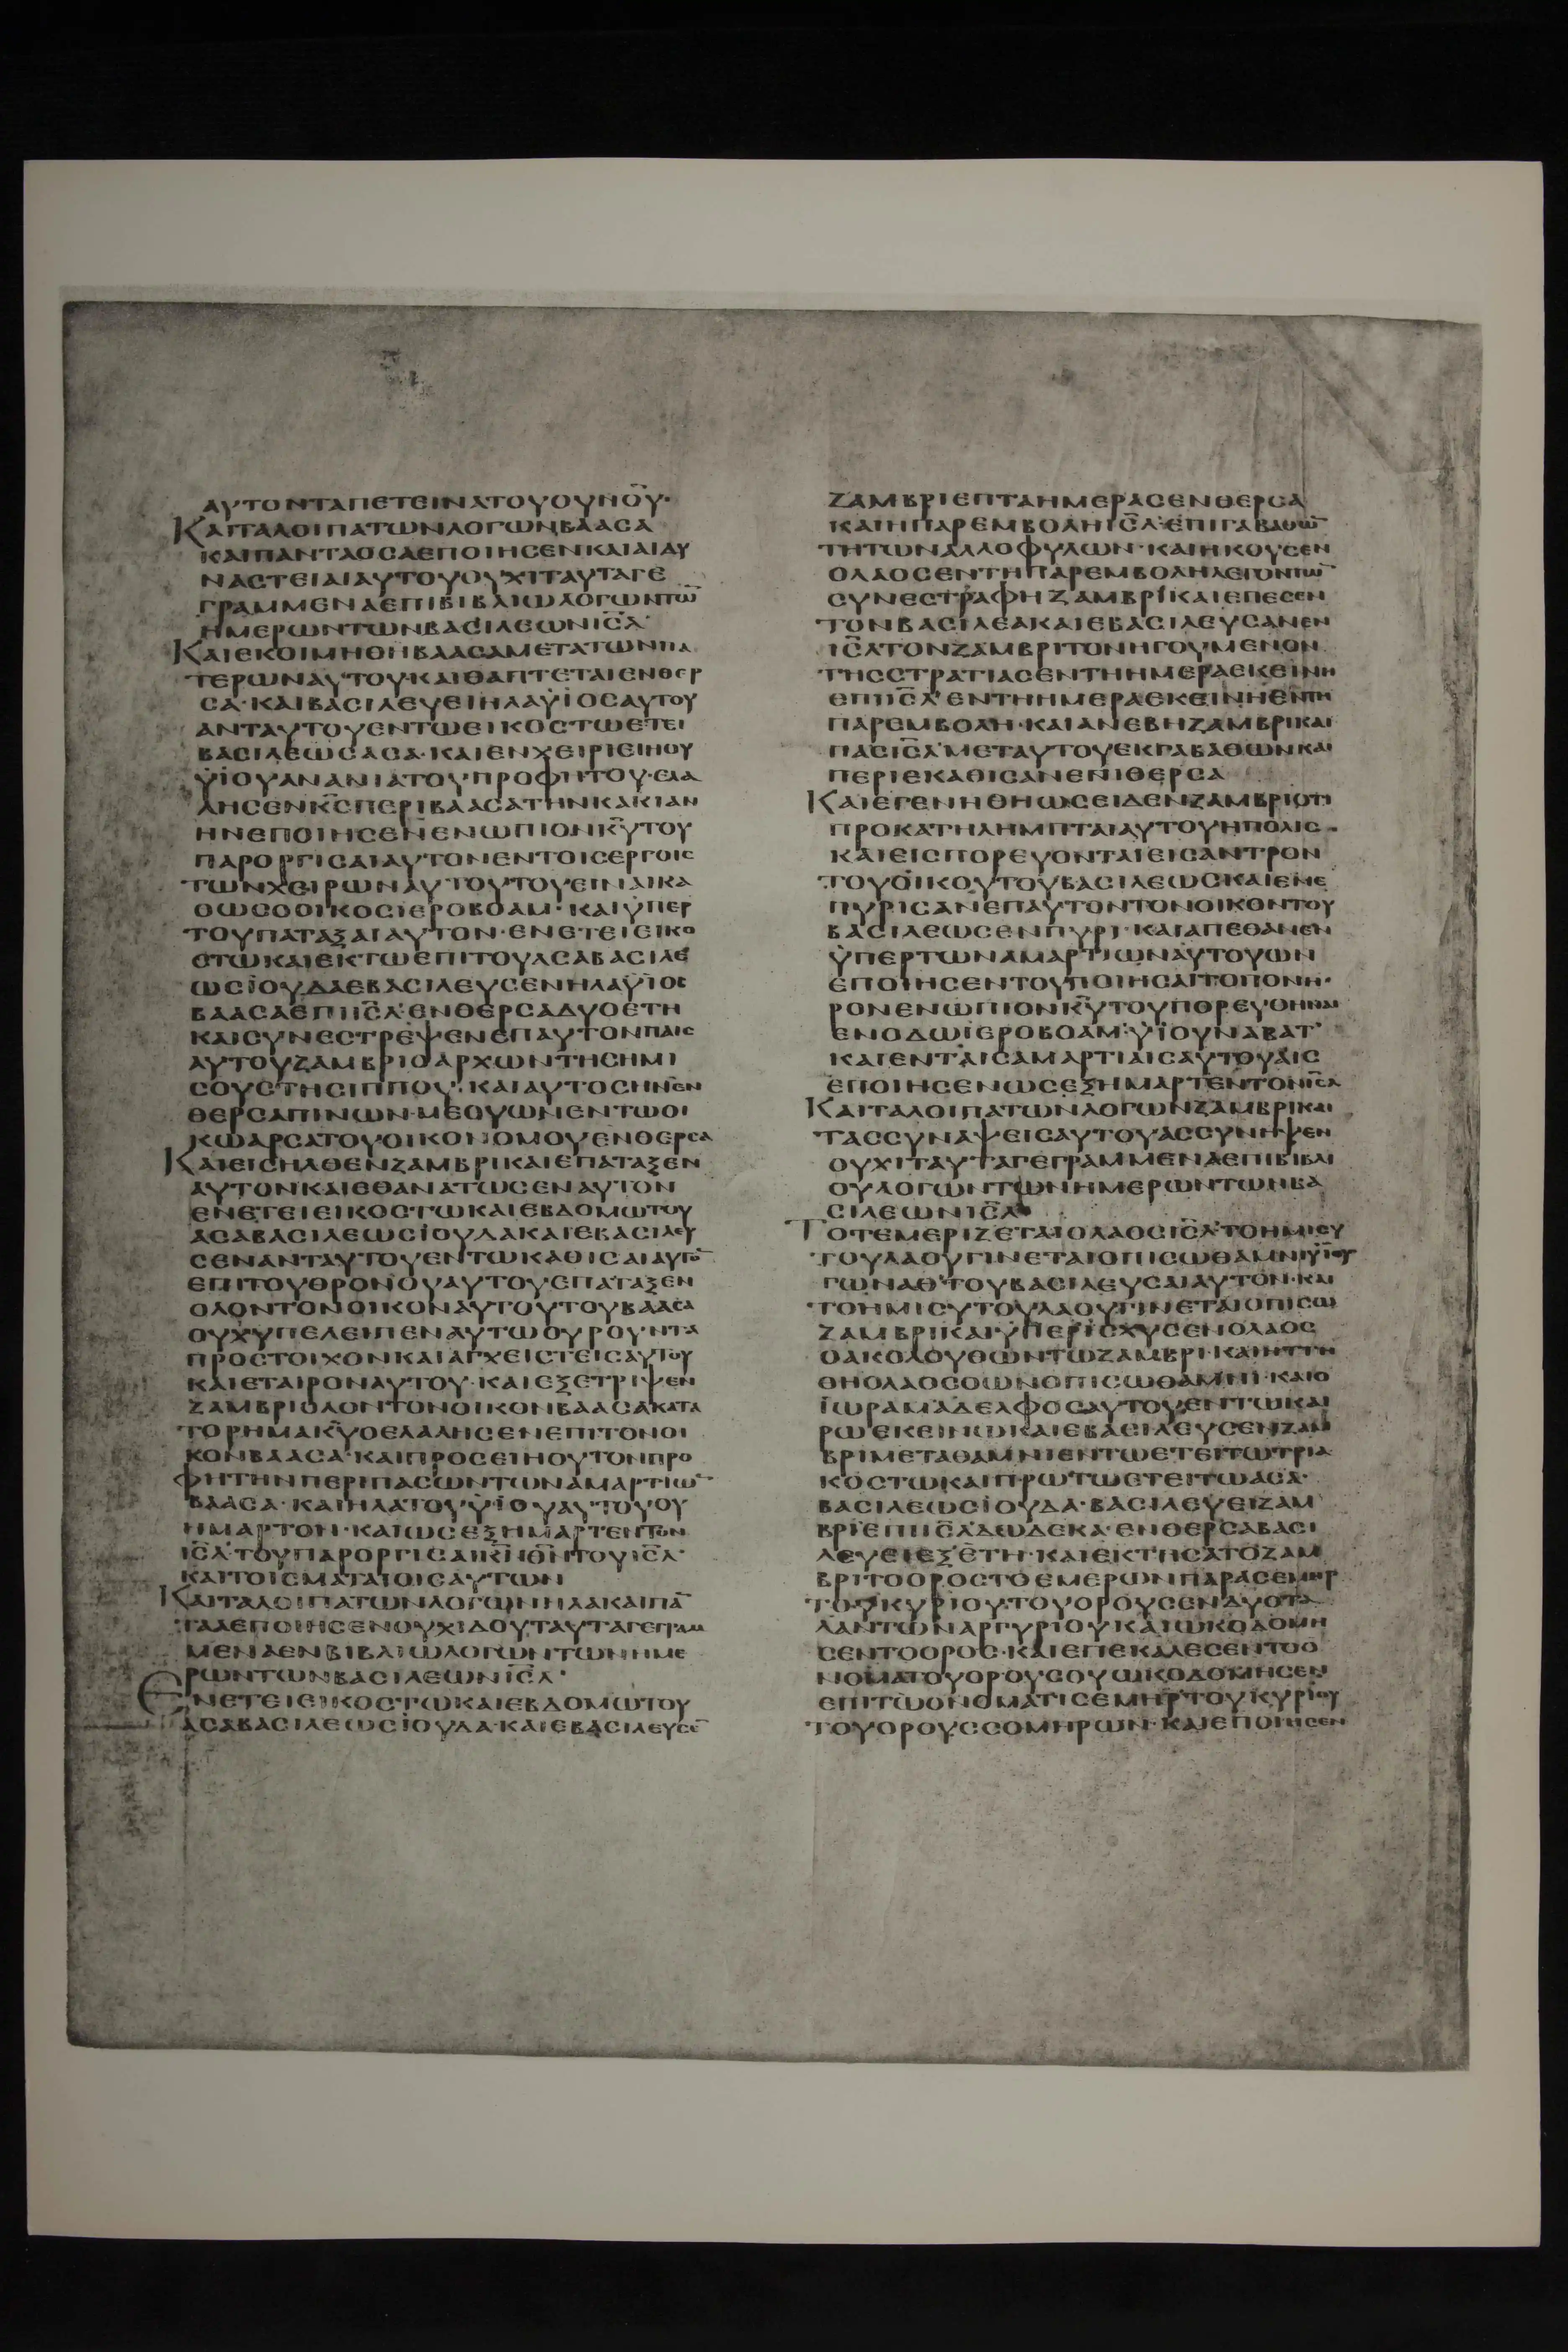 ΑΥΤΟΝΤΑΠΕΤΕΙΝΑΤΟΥΟΥΝΟΥ·
ΚΑΙΤΑΛΟΙΠΑΤΩΝΛΟΓΩΝΒΑΑΣΑ
ΚΑΙΠΑΝΤΑΟΣΑΕΠΟΙΗΣΕΝΚΑΙΑΙΔΥ
ΝΑΣΤΕΙΑΙΑΥΤΟΥΟΥΧΙΤΑΥΤΑΓΕ
ΓΡΑΜΜΕΝΑΕΠΙΒΙΒΛΙΩΛΟΓΩΝΤΩ̅
ΗΜΕΡΩΝΤΩΝΒΑΣΙΛΕΩΝΙΣ̅Λ
ΚΑΙΕΚΟΙΜΗΘΗΒΑΑΣΑΜΕΤΑΤΩΝΠΑ
ΤΕΡΩΝΑΥΤΟΥΚΑΙΘΑΠΤΕΤΑΙΕΝΘΕΡ
ΣΑ·ΚΑΙΒΑΣΙΛΕΥΕΙΗΛΑΫΙΟΣΑΥΤΟΥ
ΑΝΤΑΥΤΟΥΕΝΤΩΕΙΚΟΣΤΩΕΤΕΙ
ΒΑΣΙΛΕΩΣΑΣΑ·ΚΑΙΕΝΧΕΙΡΙΕΙΗΟΥ
ΫΙΟΥΑΝΑΝΙΑΤΟΥΠΡΟΦΗΤΟΥ·ΕΛΑ
ΛΗΣΕΝΚ̅Σ̅ΠΕΡΙΒΑΑΣΑΤΗΝΚΑΚΙΑΝ
ΗΝΕΠΟΙΗΣΕΝΕΝΩΠΙΟΝΚ̅Υ̅ΤΟΥ
ΠΑΡΟΡΓΙΣΑΙΑΥΤΟΝΕΝΤΟΙΣΕΡΓΟΙΣ
ΤΩΝΧΕΙΡΩΝΑΥΤΟΥΤΟΥΕΙΝΑΙΚΑ
ΘΩΣΟΟΙΚΟΣΙΕΡΟΒΟΑΜ·ΚΑΙΫΠΕΡ
ΤΟΥΠΑΤΑΞΑΙΑΥΤΟΝ·ΕΝΕΤΕΙΕΙΚΟ
ΣΤΩΚΑΙΕΚΤΩΕΠΙΤΟΥΑΣΑΒΑΣΙΛΕ
ΩΣΙΟΥΔΑΕΒΑΣΙΛΕΥΣΕΝΗΛΑΫΙΟΣ
ΒΑΑΣΑΕΠΙΙΣ̅Λ·ΕΝΘΕΡΣΑΔΥΟΕΤΗ
ΚΑΙΣΥΝΕΣΤΡΕΨΕΝΕΠΑΥΤΟΝΠΑΙΣ
ΑΥΤΟΥΖΑΜΒΡΙΟΑΡΧΩΝΤΗΣΗΜΙ
ΣΟΥΣΤΗΣΙΠΠΟΥ·ΚΑΙΑΥΤΟΣΗΝΕΝ
ΘΕΡΣΑΠΙΝΩΝ·ΜΕΘΥΩΝΕΝΤΩΟΙ
ΚΩΑΡΣΑΤΟΥΟΙΚΟΝΟΜΟΥΕΝΘΕΡΣΑ
ΚΑΙΕΙΣΗΛΘΕΝΖΑΜΒΡΙΚΑΙΕΠΑΤΑΞΕΝ
ΑΥΤΟΝΚΑΙΕΘΑΝΑΤΩΣΕΝΑΥΤΟΝ
ΕΝΕΤΕΙΕΙΚΟΣΤΩΚΑΙΕΒΔΟΜΩΤΟΥ
ΑΣΑΒΑΣΙΛΕΩΣΙΟΥΔΑΚΑΙΕΒΑΣΙΛΕΥ
ΣΕΝΑΝΤΑΥΤΟΥΕΝΤΩΚΑΘΙΣΑΙΑΥΤΟ̅
ΕΠΙΤΟΥΘΡΟΝΟΥΑΥΤΟΥΕΠΑΤΑΞΕΝ
ΟΛΟΝΤΟΝΟΙΚΟΝΑΥΤΟΥΤΟΥΒΑΑΣΑ
ΟΥΧΥΠΕΛΕΙΠΕΝΑΥΤΩΟΥΡΟΥΝΤΑ
ΠΡΟΣΤΟΙΧΟΝΚΑΙΑΓΧΕΙΣΤΕΙΣΑΥΤΟΥ
ΚΑΙΕΤΑΙΡΟΝΑΥΤΟΥ·ΚΑΙΕΞΕΤΡΙΨΕΝ
ΖΑΜΒΡΙΟΛΟΝΤΟΝΟΙΚΟΝΒΑΑΣΑΚΑΤΑ
ΤΟΡΗΜΑΚ̅Υ̅ΟΕΛΑΛΗΣΕΝΕΠΙΤΟΝΟΙ
ΚΟΝΒΑΑΣΑ·ΚΑΙΠΡΟΣΕΙΗΟΥΤΟΝΠΡΟ
ΦΗΤΗΝΠΕΡΙΠΑΣΩΝΤΩΝΑΜΑΡΤΙΩ̅
ΒΑΑΣΑ·ΚΑΙΗΛΑΤΟΥΫΙΟΥΑΥΤΟΥΟΥ
ΗΜΑΡΤΟΝ·ΚΑΙΩΣΕΞΗΜΑΡΤΕΝΤΟΝ
ΙΣ̅Λ·ΤΟΥΠΑΡΟΡΓΙΣΑΙΚ̅Ν̅Θ̅Ν̅ΤΟΥΙΣ̅Λ·
ΚΑΙΤΟΙΣΜΑΤΑΙΟΙΣΑΥΤΩΝ
ΚΑΙΤΑΛΟΙΠΑΤΩΝΛΟΓΩΝΗΛΑΚΑΙΠΑ̅
ΤΑΑΕΠΟΙΗΣΕΝΟΥΧΙΔΟΥΤΑΥΤΑΓΕΓΡΑΜ
ΜΕΝΑΕΝΒΙΒΛΙΩΛΟΓΩΝΤΩΝΗΜΕ
ΡΩΝΤΩΝΒΑΣΙΛΕΩΝΙΣ̅Λ·
ΕΝΕΤΕΙΕΙΚΟΣΤΩΚΑΙΕΒΔΟΜΩΤΟΥ
ΑΣΑΒΑΣΙΛΕΩΣΙΟΥΔΑ·ΚΑΙΕΒΑΣΙΛΕΥΣΕ̅
ΖΑΜΒΡΙΕΠΤΑΗΜΕΡΑΣΕΝΘΕΡΣΑ
ΚΑΙΗΠΑΡΕΜΒΟΛΗΙΣ̅Λ·ΕΠΙΓΑΒΑΘΩ̅
ΤΗΤΩΝΑΛΛΟΦΥΛΩΝ·ΚΑΙΗΚΟΥΣΕΝ
ΟΛΑΟΣΕΝΤΗΠΑΡΕΜΒΟΛΗΛΕΓΟΝΤΩ̅
ΣΥΝΕΣΤΡΑΦΗΖΑΜΒΡΙΚΑΙΕΠΕΣΕΝ
ΤΟΝΒΑΣΙΛΕΑΚΑΙΕΒΑΣΙΛΕΥΣΑΝΕΝ
ΙΣ̅ΛΤΟΝΖΑΜΒΡΙΤΟΝΗΓΟΥΜΕΝΟΝ
ΤΗΣΣΤΡΑΤΙΑΣΕΝΤΗΗΜΕΡΑΕΚΕΙΝΗ
ΕΠΙΙΣ̅Λ·ΕΝΤΗΗΜΕΡΑΕΚΕΙΝΗΕΝΤΗ
ΠΑΡΕΜΒΟΛΗ·ΚΑΙΑΝΕΒΗΖΑΜΒΡΙΚΑΙ
ΠΑΣΙΣ̅ΛΜΕΤΑΥΤΟΥΕΚΓΑΒΑΘΩΝΚΑΙ
ΠΕΡΙΕΚΑΘΙΣΑΝΕΝΙΘΕΡΣΑ
ΚΑΙΕΓΕΝΗΘΗΩΣΕΙΔΕΝΖΑΜΒΡΙΟΤΙ
ΠΡΟΚΑΤΗΛΗΜΠΤΑΙΑΥΤΟΥΗΠΟΛΙΣ·
ΚΑΙΕΙΣΠΟΡΕΥΟΝΤΑΙΕΙΣΑΝΤΡΟΝ
ΤΟΥΟΙΚΟΥΤΟΥΒΑΣΙΛΕΩΣΚΑΙΕΝΕ
ΠΥΡΙΣΑΝΕΠΑΥΤΟΝΤΟΝΟΙΚΟΝΤΟΥ
ΒΑΣΙΛΕΩΣΕΝΠΥΡΙ·ΚΑΙΑΠΕΘΑΝΕΝ
ΫΠΕΡΤΩΝΑΜΑΡΤΙΩΝΑΥΤΟΥΩΝ
ΕΠΟΙΗΣΕΝΤΟΥΠΟΙΗΣΑΙΤΟΠΟΝΗ·
ΡΟΝΕΝΩΠΙΟΝΚ̅Υ̅ΤΟΥΠΟΡΕΥΘΗΝΑΙ
ΕΝΟΔΩΙΕΡΟΒΟΑΜ·ΫΙΟΥΝΑΒΑΤ·
ΚΑΙΕΝΤΑΙΣΑΜΑΡΤΙΑΙΣΑΥΤΟΥΑΙΣ
ΕΠΟΙΗΣΕΝΩΣΕΞΗΜΑΡΤΕΝΤΟΝΙΣ̅Λ
ΚΑΙΤΑΛΟΙΠΑΤΩΝΛΟΓΩΝΖΑΜΒΡΙΚΑΙ
ΤΑΣΣΥΝΑΨΕΙΣΑΥΤΟΥΑΣΣΥΝΗΨΕΝ
ΟΥΧΙΤΑΥΤΑΓΕΓΡΑΜΜΕΝΑΕΠΙΒΙΒΛΙ
ΟΥΛΟΓΩΝΤΩΝΗΜΕΡΩΝΤΩΝΒΑ
ΣΙΛΕΩΝΙΣ̅Λ
ΤΟΤΕΜΕΡΙΖΕΤΑΙΟΛΑΟΣΙΣ̅Λ·ΤΟΗΜΙΣΥ
ΤΟΥΛΑΟΥΓΙΝΕΤΑΙΟΠΙΣΩΘΑΜΝΙΫΙΟΥ
ΓΩΝΑΘ·ΤΟΥΒΑΣΙΛΕΥΣΑΙΑΥΤΟΝ·ΚΑΙ
ΤΟΗΜΙΣΥΤΟΥΛΑΟΥΓΙΝΕΤΑΙΟΠΙΣΩ
ΖΑΜΒΡΙΚΑΙΫΠΕΡΙΣΧΥΣΕΝΟΛΑΟΣ
ΟΑΚΟΛΟΥΘΩΝΤΩΖΑΜΒΡΙ·ΚΑΙΗΤΤΗ
ΘΗΟΛΑΟΣΟΩΝΟΠΙΣΩΘΑΜΝΙ·ΚΑΙΟ
ΙΩΡΑΜΑΔΕΛΦΟΣΑΥΤΟΥΕΝΤΩΚΑΙ
ΡΩΕΚΕΙΝΩΚΑΙΕΒΑΣΙΛΕΥΣΕΝΖΑΜ
ΒΡΙΜΕΤΑΘΑΜΝΙΕΝΤΩΕΤΕΙΤΩΤΡΙΑ
ΚΟΣΤΩΚΑΙΠΡΩΤΩΕΤΕΙΤΩΑΣΑ·
ΒΑΣΙΛΕΩΣΙΟΥΔΑ·ΒΑΣΙΛΕΥΕΙΖΑΜ
ΒΡΙΕΠΙΙΣ̅ΛΔΩΔΕΚΑ·ΕΝΘΕΡΣΑΒΑΣΙ
ΛΕΥΕΙΕΞΕΤΗ·ΚΑΙΕΚΤΗΣΑΤΟΖΑΜ
ΒΡΙΤΟΟΡΟΣΤΟΕΜΕΡΩΝΠΑΡΑΣΕΜΗΡ
ΤΟΥΚΥΡΙΟΥΤΟΥΟΡΟΥΣΕΝΔΥΟΤΑ
ΛΑΝΤΩΝΑΡΓΥΡΙΟΥΚΑΙΩΚΟΔΟΜΗ
ΣΕΝΤΟΟΡΟΣ·ΚΑΙΕΠΕΚΑΛΕΣΕΝΤΟΟ
ΝΟΜΑΤΟΥΟΡΟΥΣΟΥΩΚΟΔΟΜΗΣΕΝ
ΕΠΙΤΩΟΝΟΜΑΤΙΣΕΜΗΡΤΟΥΚΥΡΙΟΥ
ΤΟΥΟΡΟΥΣΣΟΜΗΡΩΝ·ΚΑΙΕΠΟΙΗΣΕΝ